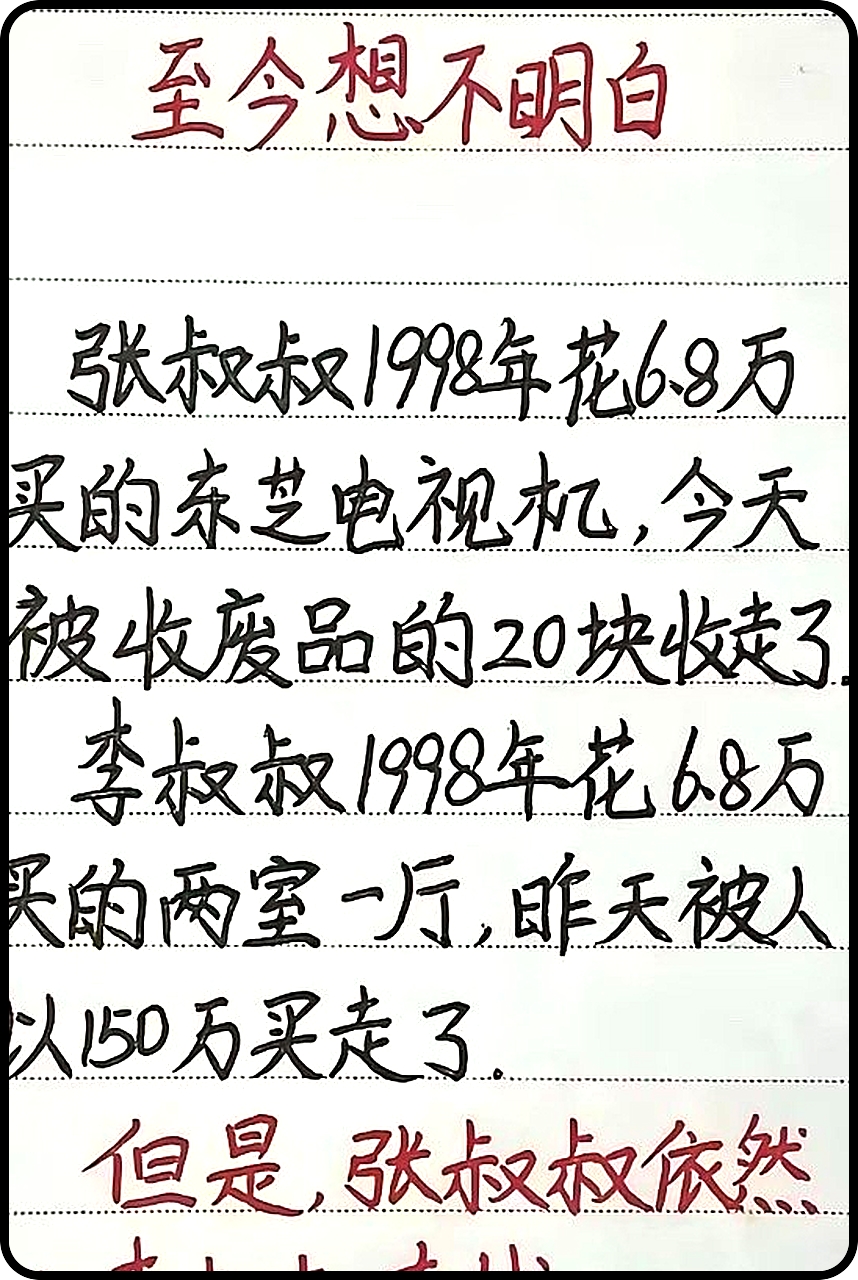 至今想不明白
张叔叔1998年花6.8万
买的东芝电视机,今天
被收废品的20块收走了.
李叔叔1998年花6.8万
买的两室一厅,昨天被人
以150万买走了.
但是,张叔叔依然